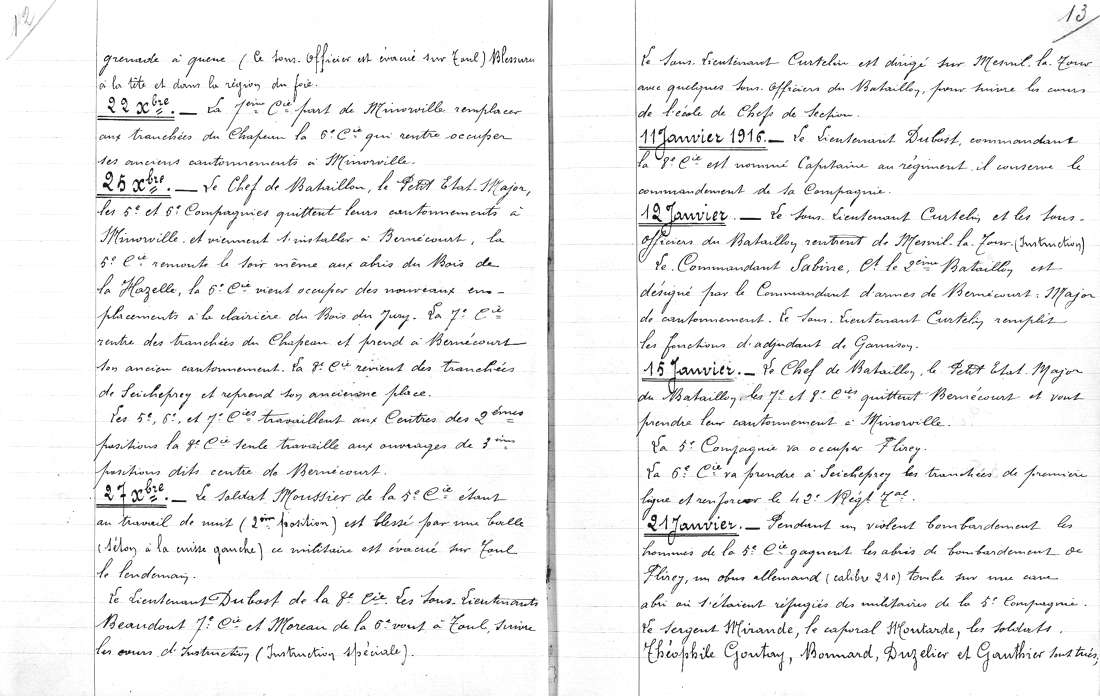 12
grenade à queue (Ce sous-Officier est évacué sur Toul) Blessures
à la tête et dans la région du foie.
22 Xbre. — La 7ème Cie part de Minorville remplacer
aux tranchées du Chapeau la 6e Cie qui rentre occuper
ses anciens cantonnements à Minorville.
25 Xbre. — Le Chef de Bataillon, le Petit Etat-Major,
les 5e et 6e Compagnies quittent leurs cantonnements à
Minorville et viennent s'installer à Bernécourt, la
5e Cie remonte le soir même aux abris du Bois de
la Hazelle, la 6e Cie vient occuper des nouveaux em-
placements à la clairière du Bois du Jury. La 7e Cie
rentre des tranchées du Chapeau et prend à Bernécourt
son ancien cantonnement. La 8e Cie revient des tranchées
de Seicheprey et reprend son ancienne place.
Les 5e, 6e, et 7e Cies travaillent aux Centres des 2èmes
positions la 8e Cie seule travaille aux ouvrages de 3ème
positions dits centre de Bernécourt.
27 Xbre. — Le soldat Moussier de la 5e Cie étant
au travail de nuit (2ème position) est blessé par une balle
(séton à la cuisse gauche) ce militaire est évacué sur Toul
le lendemain.
Le Lieutenant Dubost de la 8e Cie. Les Sous-Lieutenants
Beaudout 7e Cie et Moreau de la 6e vont à Toul, suivre
les cours d'Instruction (Instruction spéciale).
13
Le Sous-Lieutenant Curtelin est dirigé sur Mesnil-la-Tour
avec quelques Sous-Officiers du Bataillon, pour suivre les cours
de l'école de Chefs de Section.
11 Janvier 1916. — Le Lieutenant Dubost, commandant
la 8e Cie est nommé Capitaine au régiment, il conserve le
commandement de sa Compagnie.
12 Janvier. — Le Sous-Lieutenant Curtelin et les Sous-
Officiers du Bataillon rentrent de Mesnil-la-Tour. (Instruction)
Le Commandant Sabine, Ct le 2ème Bataillon est
désigné par le Commandant d'armes de Bernécourt : Major
de cantonnement. Le Sous-Lieutenant Curtelin remplit
les fonctions d'adjudant de Garnison.
15 Janvier. — Le Chef de Bataillon, le Petit Etat-Major
du Bataillon, les 7e et 8e Cies quittent Bernécourt et vont
prendre leur cantonnement à Minorville.
La 5e Compagnie va occuper Flirey.
La 6e Cie va prendre à Seicheprey les tranchées de première
ligne et renforcer le 42e Régt Tal.
21 Janvier. — Pendant un violent bombardement les
hommes de la 5e Cie gagnent les abris de bombardement de
Flirey, un obus allemand (calibre 210) tombe sur une cave
abri où s'étaient réfugiés des militaires de la 5e Compagnie.
Le sergent Mirande, le caporal Moutarde, les soldats.
Théophile Goutay, Bonnard, Duzelier et Gauthier sont tués,